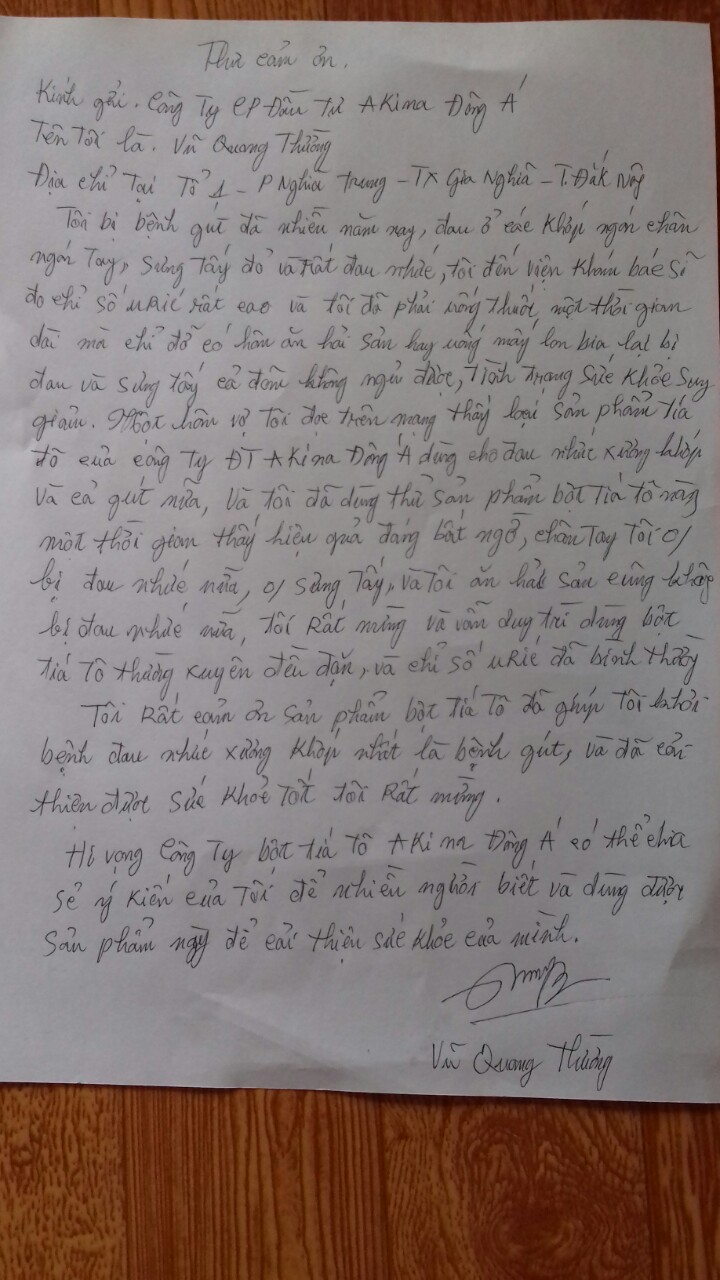 Thư cảm ơn.
Kính gửi. Công Ty CP Đầu Tư AKina Đông Á
Tên Tôi là. Vũ Quang Thưởng
Địa chỉ Tại Tổ 1 - P Nghĩa Trung - TX Gia Nghĩa - T. Đắk Nông
Tôi bị bệnh gút đã nhiều năm nay, đau ở các khớp ngón chân
ngón Tay, Sưng Tấy đỏ và Rất đau nhức, tôi đến viện khám bác sĩ
đo chỉ số uRíc rất cao và tôi đã phải uống thuốc một thời gian
dài mà chỉ đỡ có hôm ăn hải sản hay uống mấy lon bia lại bị
đau và sưng tấy cả đêm không ngủ được, Tình trạng Sức khỏe Suy
giảm. Một hôm vợ Tôi đọc trên mạng thấy loại sản phẩm tía
tô của công Ty ĐT AKina Đông Á dùng cho đau nhức xương khớp
và cả gút nữa, và tôi đã dùng thử sản phẩm bột Tía tô này
một thời gian thấy hiệu quả đáng bất ngờ, chân Tay Tôi o/
bị đau nhức nữa, o/ sưng Tấy, và Tôi ăn hải sản cũng không
bị đau nhức nữa, tôi Rất mừng và vẫn duy trì dùng bột
tía Tô thường xuyên đều đặn, và chỉ số uRíc đã bình thường
Tôi Rất cảm ơn sản phẩm bột tía Tô đã ghúp Tôi khỏi
bệnh đau nhức xương khớp nhất là bệnh gút, và đã cải
thiện được sức khỏe Tốt tôi Rất mừng.
Hi vọng Công Ty bột tía Tô AKina Đông Á có thể chia
sẻ ý kiến của Tôi để nhiều người biết và dùng được
Sản phẩm này để cải thiện sức khỏe của mình.
Vũ Quang Thưởng